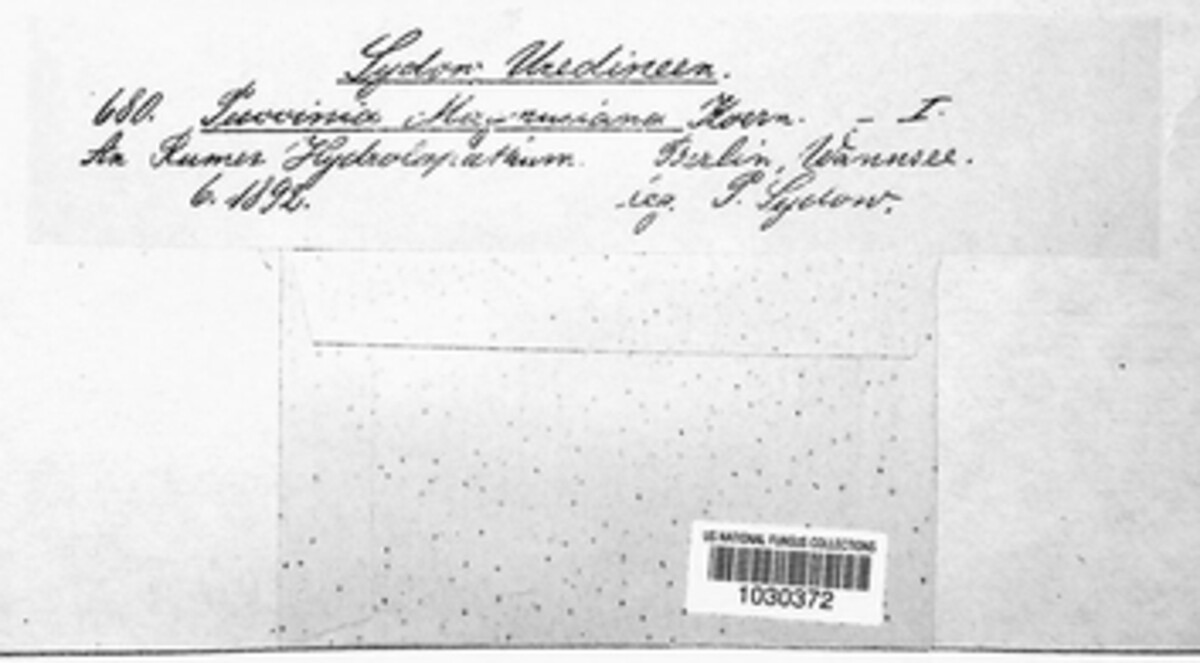 Sydow, Uredineen.
680. Puccinia Magnusiana Koern. – I.
An Rumex Hydrolapathum. Berlin, Wannsee.
6. 1892. leg. P. Sydow.
US NATIONAL FUNGUS COLLECTIONS
1030372